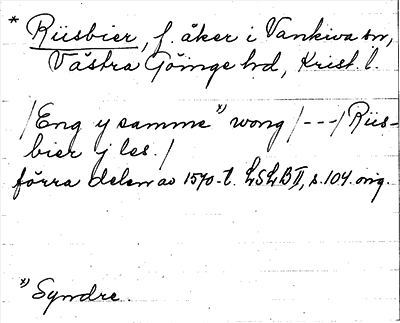 * Riisbier, f. åker i Vankiva sn,
Västra Göinge hd, Krist. l.
/Eng y samme *) wong /---/ Riis-
bier j les./
förra delen av 1570-t. LSLB II, s. 104. orig.
*) Syndre.